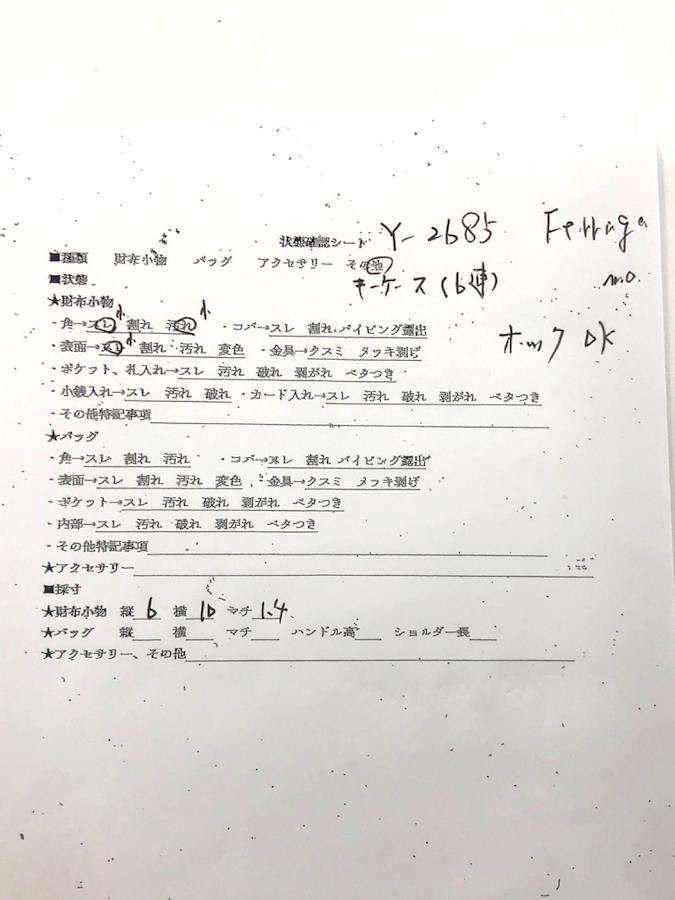 状態確認シート Y-2685 Ferraga
■種類 財布小物 バッグ アクセサリー その他
■状態 キーケース(6連) mo
★財布小物 小 小
・角→スレ 割れ 汚れ ・コバ→スレ 割れ パイピング露出
小 ホック OK
・表面→スレ 割れ 汚れ 変色 ・金具→クスミ メッキ剥げ
・ポケット、札入れ→スレ 汚れ 破れ 剥がれ ベタつき
・小銭入れ→スレ 汚れ 破れ ・カード入れ→スレ 汚れ 破れ 剥がれ ベタつき
・その他特記事項
★バッグ
・角→スレ 割れ 汚れ ・コバ→スレ 割れ パイピング露出
・表面→スレ 割れ 汚れ 変色 ・金具→クスミ メッキ剥げ
・ポケット→スレ 汚れ 破れ 剥がれ ベタつき
・内部→スレ 汚れ 破れ 剥がれ ベタつき
・その他特記事項
★アクセサリー
■採寸
★財布小物 縦 6 横 10 マチ 1.4
★バッグ 縦 横 マチ ハンドル高 ショルダー長
★アクセサリー、その他